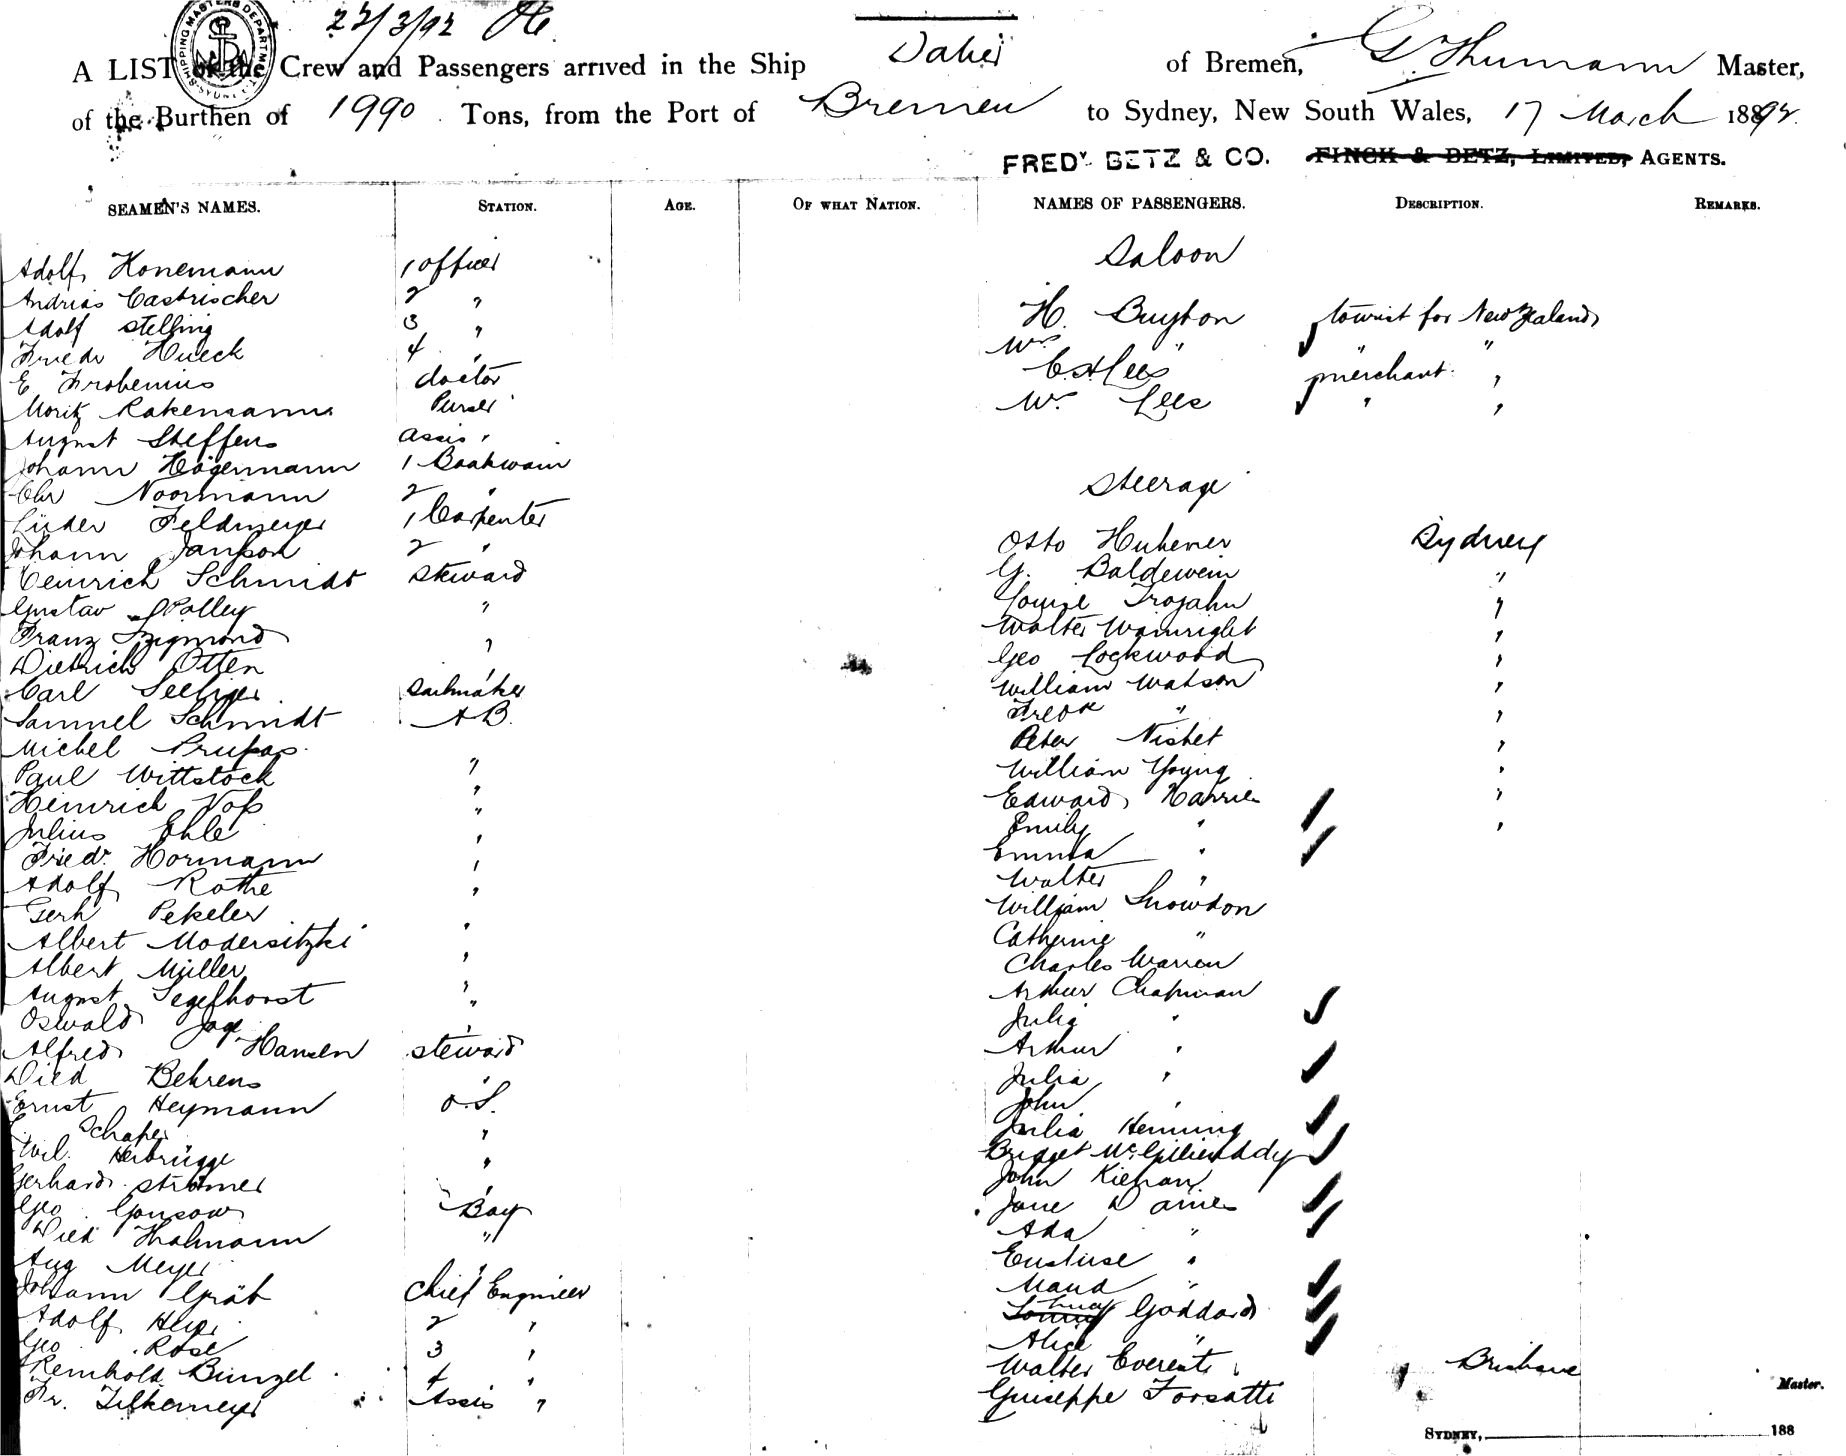 22/3/92
A LIST of the Crew and Passengers arrived in the Ship Daher of Bremen, G Thumann Master,
of the Burthen of 1990 Tons, from the Port of Bremen to Sydney, New South Wales, 17 March 1892.
FREDY BETZ & CO. FINCK & BETZ, LIMITED, AGENTS.
SEAMEN'S NAMES. STATION. AGE. OF WHAT NATION. NAMES OF PASSENGERS. DESCRIPTION. REMARKS.
Saloon
Adolf Honemann 1 officer
Andrias Castrischer 2 "
Adolf Stelling 3 "
H. Buyton tourist for New Zealand
Friedr Hueck 4 "
Mrs " " "
E Frobenius doctor
C. H Lees merchant "
Moritz Rakemann Purser
Mrs Lees " "
August Steffens assis "
Johann Hägermann 1 Boatswain
Chr Noormann 2 "
Steerage
Lüder Feldmeyer 1 Carpenter
Johann Janßon 2 "
Otto Huhener Sydney
Heinrich Schmidt Steward
G. Baldewein "
Gustav Polley "
Louise Trojahn "
Franz Szigmond "
Walter Wainright "
Dietrich Otten "
Geo Lockwood "
Carl Seeliger Sailmaker
William Watson "
Samuel Schmidt A B.
Fredk " "
Michel Prupas "
Peter Nisbet "
Paul Wittstock "
William Young "
Heinrich Voß "
Edward Harries "
Julius Ehle "
Emily " "
Friedr. Hormann "
Emma "
Adolf Rothe "
Walter "
Gerh Pekeler "
William Snowdon
Albert Modersitzki "
Catherine "
Albert Müller "
Charles Warren
August Segelhorst "
Arthur Chapman
Oswald Jage "
Julia "
Alfred Hansen Steward
Arthur "
Died Behrens "
Julia "
Ernst Heymann O.S.
John "
Schaper "
Julia Henning
Wil. Herbrügge "
Bridget
Gerhard Strömer "
John Kiernan
Geo Gonsow Boy
Jane Daines
Died Thalmann "
Ada "
Aug Meyer "
"
Johann Gräb Chief Engineer
Maud "
Adolf 2 "
Lucy Goddard
Geo Rose 3 "
Alice "
Reinhold Bunzel 4 "
Walter Everett Brisbane
Fr. Tilkemeyer Assis "
Guiseppe Forsatti
Master.
SYDNEY, 188